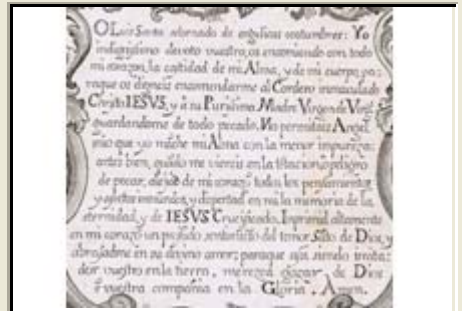 O Luis Santo adornado de angelicas costumbres: Yo
indignissimo devoto vuestro, os encomiendo con todo
mi corazon, la castidad de mi Alma, y de mi cuerpo, pa:
raque os digneis encomendarme al Cordero inmaculado
Christo IESVS, y a su Purissima Madre Virgen de Virg
guardandome de todo pecado. No permitais Angel
mio que yo māche mi Alma con la menor impureza:
antes bien, quādo me viereis en la tētacion, ò peligro
de pecar, alejad de mi corazō todos los pensamientos
y afectos inmūdos, y dispertad en mi la memoria de la
eternidad, y de IESVS Crucificado. Imprimid altamente
en mi corazō un profūdo sentimiēto del temor Sāto de Dios, y
abrasadme en su divino amor; paraque assi siendo imita:
dor vuestro en la tierra, merezca gozar, de Dios
ē vuestra compañia en la Gloria. Amen.